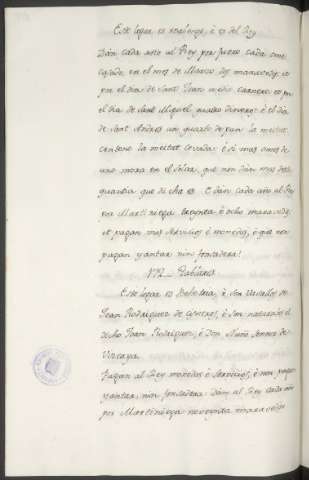 Este logar es realengo, é es del Rey
Dan cada año al Rey por fuero cada ome
en el mes de Marzo dos maravedis, et
por el dia de Sant Juan medio carnero et por
el dia de Sant Miguel quatro dineros, é el dia
de Sant Andres un quarto de pan la meitat
centeno la meitat cevada: é si mas omes de
uno mora en el Solar, que non dan mas desta
quantia que dicho es. E dan cada año al Rey
por Martiniega treynta é ocho maravedis,
et pagan mas Servicios é monedas, é que non
pagan yantar nin fonsadera.
Este logar es Behetria, é son Vasallos de
Juan Rodriguez de Cisneros, é son naturales el
dicho Juan Rodriguez, é Don Nuño Sennor de
Vizcaya.
Pagan al Rey monedas é servicios, é non pagan
yantar, nin fonsadera. Dan al Rey cada año
por Martiniega noventa maravedis